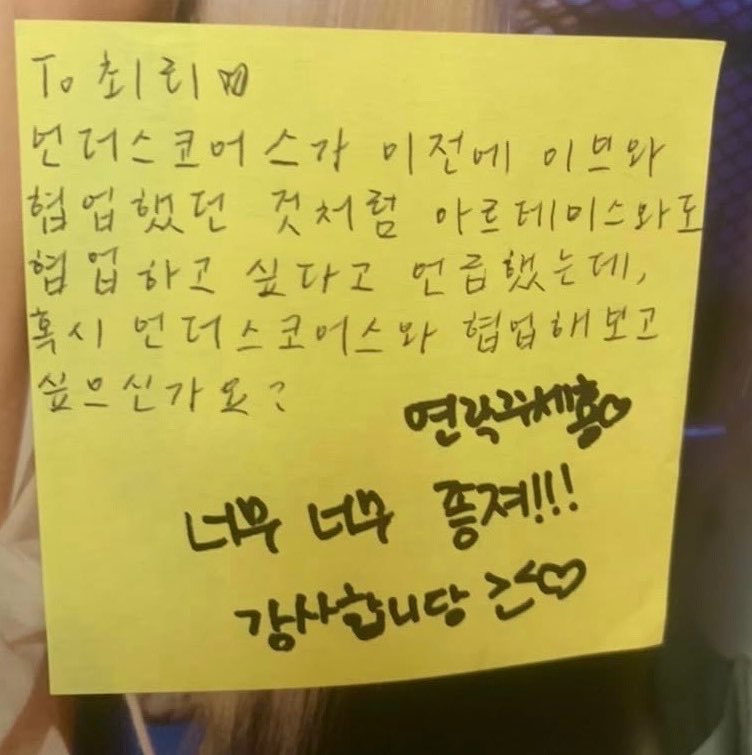 To 최리♡
언더스코어스가 이전에 이브와
협업했던 것처럼 아르테미스와도
협업하고 싶다고 언급했는데,
혹시 언더스코어스와 협업해보고
싶으신가요?
연락주세용♡
너무 너무 죵져!!!
감사합니당 ><♡